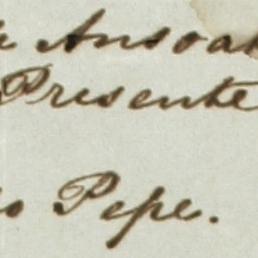 Ansoa
Presente
Pepe.